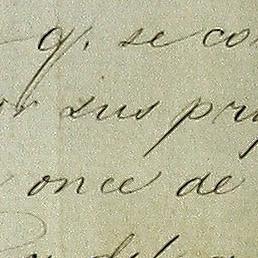 q. se co
or sus pr
once de